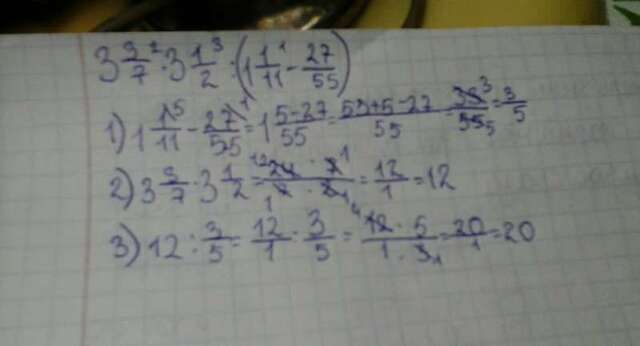 3 3/7 · 3 1/2 : (1 1/11 - 27/55)
1) 1 1/11 - 27/55 = 1 5-27/55 = 55+5-27/55 = 33/55 = 3/5
2) 3 3/7 · 3 1/2 = 24 · 7/7 · 2 = 12/1 = 12
3) 12 : 3/5 = 12/1 · 3/5 = 12 · 5/1 · 3 = 20/1 = 20